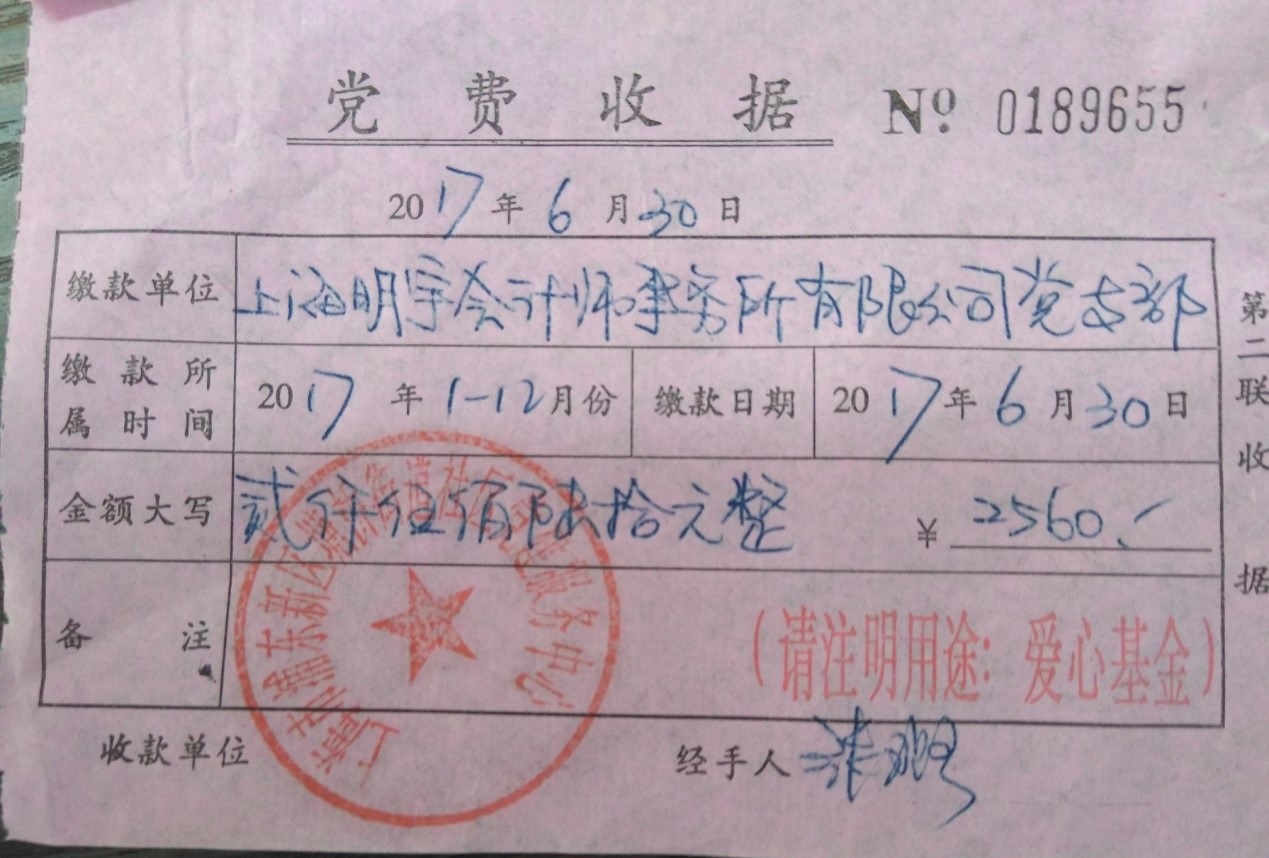 党费收据 Nº 0189655
2017年6月30日
缴款单位 上海明宇会计师事务所有限公司党支部
缴款所属时间 2017年1-12月份 缴款日期 2017年6月30日
金额大写 贰仟伍佰陆拾元整 ¥ 2560.-
备注 (请注明用途:爱心基金)
上海市浦东新区 服务中心
收款单位 经手人
第二联 收据